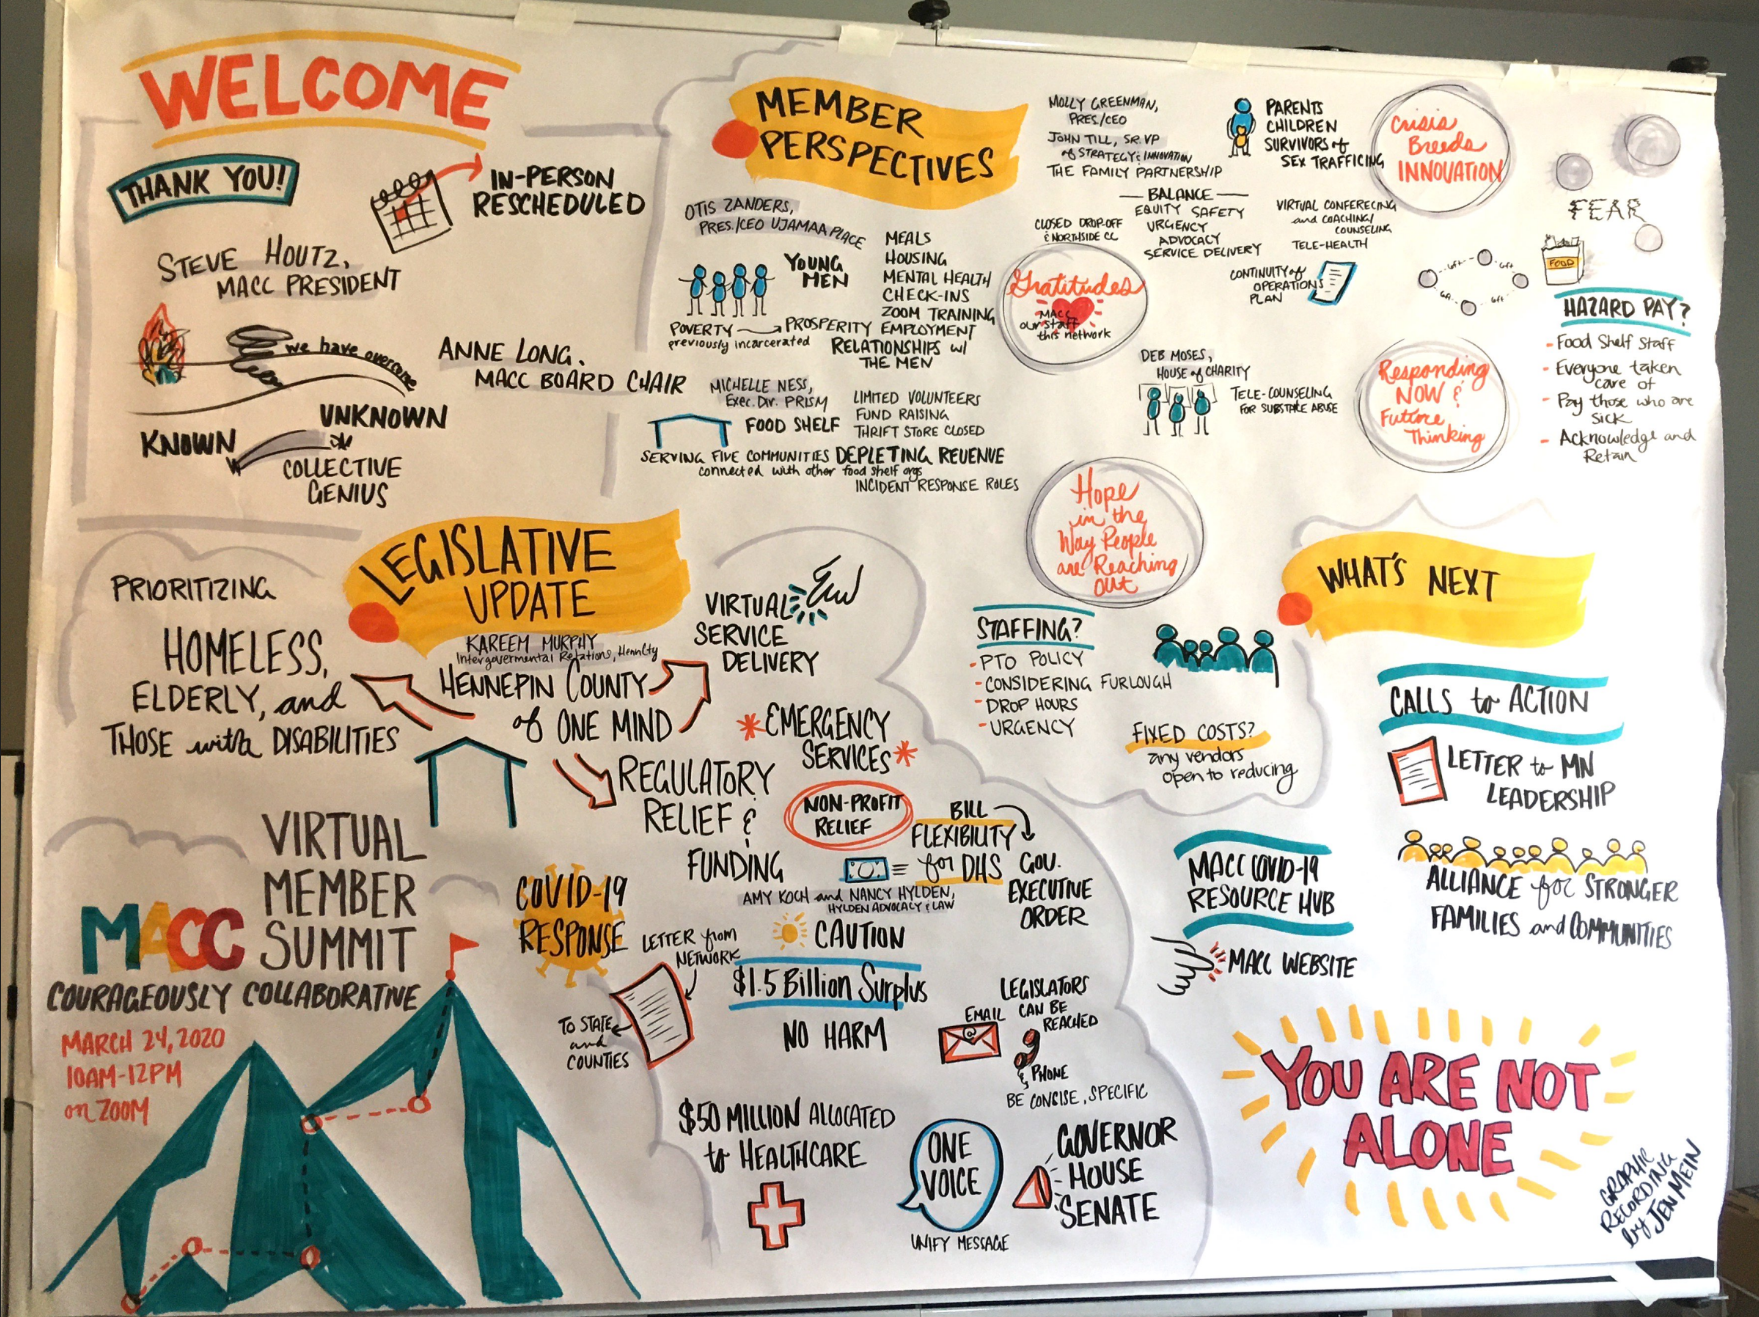 WELCOME
THANK YOU!
IN-PERSON
RESCHEDULED
STEVE HOUTZ,
MACC PRESIDENT
we have overcome
ANNE LONG,
MACC BOARD CHAIR
KNOWN
UNKNOWN
COLLECTIVE
GENIUS
MEMBER
PERSPECTIVES
OTIS ZANDERS,
PRES./CEO UJAMAA PLACE
YOUNG
MEN
POVERTY → PROSPERITY
previously incarcerated
MEALS
HOUSING
MENTAL HEALTH
CHECK-INS
ZOOM TRAINING
EMPLOYMENT
RELATIONSHIPS w/
THE MEN
MICHELLE NESS,
Exec. Dir. PRISM
FOOD SHELF
SERVING FIVE COMMUNITIES
connected with other food shelf orgs
LIMITED VOLUNTEERS
FUND RAISING
THRIFT STORE CLOSED
DEPLETING REVENUE
INCIDENT RESPONSE ROLES
MOLLY GREENMAN,
PRES./CEO
JOHN TILL, SR. VP
of STRATEGY & INNOVATION
THE FAMILY PARTNERSHIP
PARENTS
CHILDREN
SURVIVORS of
SEX TRAFFICKING
BALANCE
EQUITY SAFETY
URGENCY
ADVOCACY
SERVICE DELIVERY
CLOSED DROP-OFF
& NORTHSIDE CC
VIRTUAL CONFERECING
and COACHING/
COUNSELING
TELE-HEALTH
CONTINUITY of
OPERATIONS
PLAN
Gratitudes
MACC
our staff
this network
DEB MOSES,
HOUSE of CHARITY
TELE-COUNSELING
FOR SUBSTANCE ABUSE
Crisis
Breeds
INNOVATION
Responding
NOW &
Future
Thinking
Hope
in the
Way People
are Reaching
Out
FEAR
Gft
Gft
Gft
FOOD
HAZARD PAY?
- Food Shelf Staff
- Everyone taken
care of
- Pay those who are
sick
- Acknowledge and
Retain
STAFFING?
- PTO POLICY
- CONSIDERING FURLOUGH
- DROP HOURS
- URGENCY
FIXED COSTS?
any vendors
open to reducing
LEGISLATIVE
UPDATE
KAREEM MURPHY
Intergovernmental Relations,
HENNEPIN COUNTY
of ONE MIND
PRIORITIZING
HOMELESS,
ELDERLY, and
THOSE with DISABILITIES
VIRTUAL
SERVICE
DELIVERY
* EMERGENCY
SERVICES *
REGULATORY
RELIEF &
FUNDING
NON-PROFIT
RELIEF
BILL
FLEXIBILITY
for DHS
GOV.
EXECUTIVE
ORDER
AMY KOCH and NANCY HYLDEN,
HYLDEN ADVOCACY & LAW
COVID-19
RESPONSE
LETTER from
NETWORK
TO STATE
and
COUNTIES
CAUTION
$1.5 Billion Surplus
NO HARM
LEGISLATORS
CAN BE
REACHED
EMAIL
& PHONE
BE CONCISE, SPECIFIC
$50 MILLION ALLOCATED
to HEALTHCARE
ONE
VOICE
UNIFY MESSAGE
GOVERNOR
HOUSE
SENATE
VIRTUAL
MEMBER
SUMMIT
MACC
COURAGEOUSLY COLLABORATIVE
MARCH 24, 2020
10AM-12PM
on ZOOM
WHAT'S NEXT
CALLS to ACTION
LETTER to MN
LEADERSHIP
MACC COVID-19
RESOURCE HUB
MACC WEBSITE
ALLIANCE for STRONGER
FAMILIES and COMMUNITIES
YOU ARE NOT
ALONE
GRAPHIC
RECORDING
by JEN MEIN